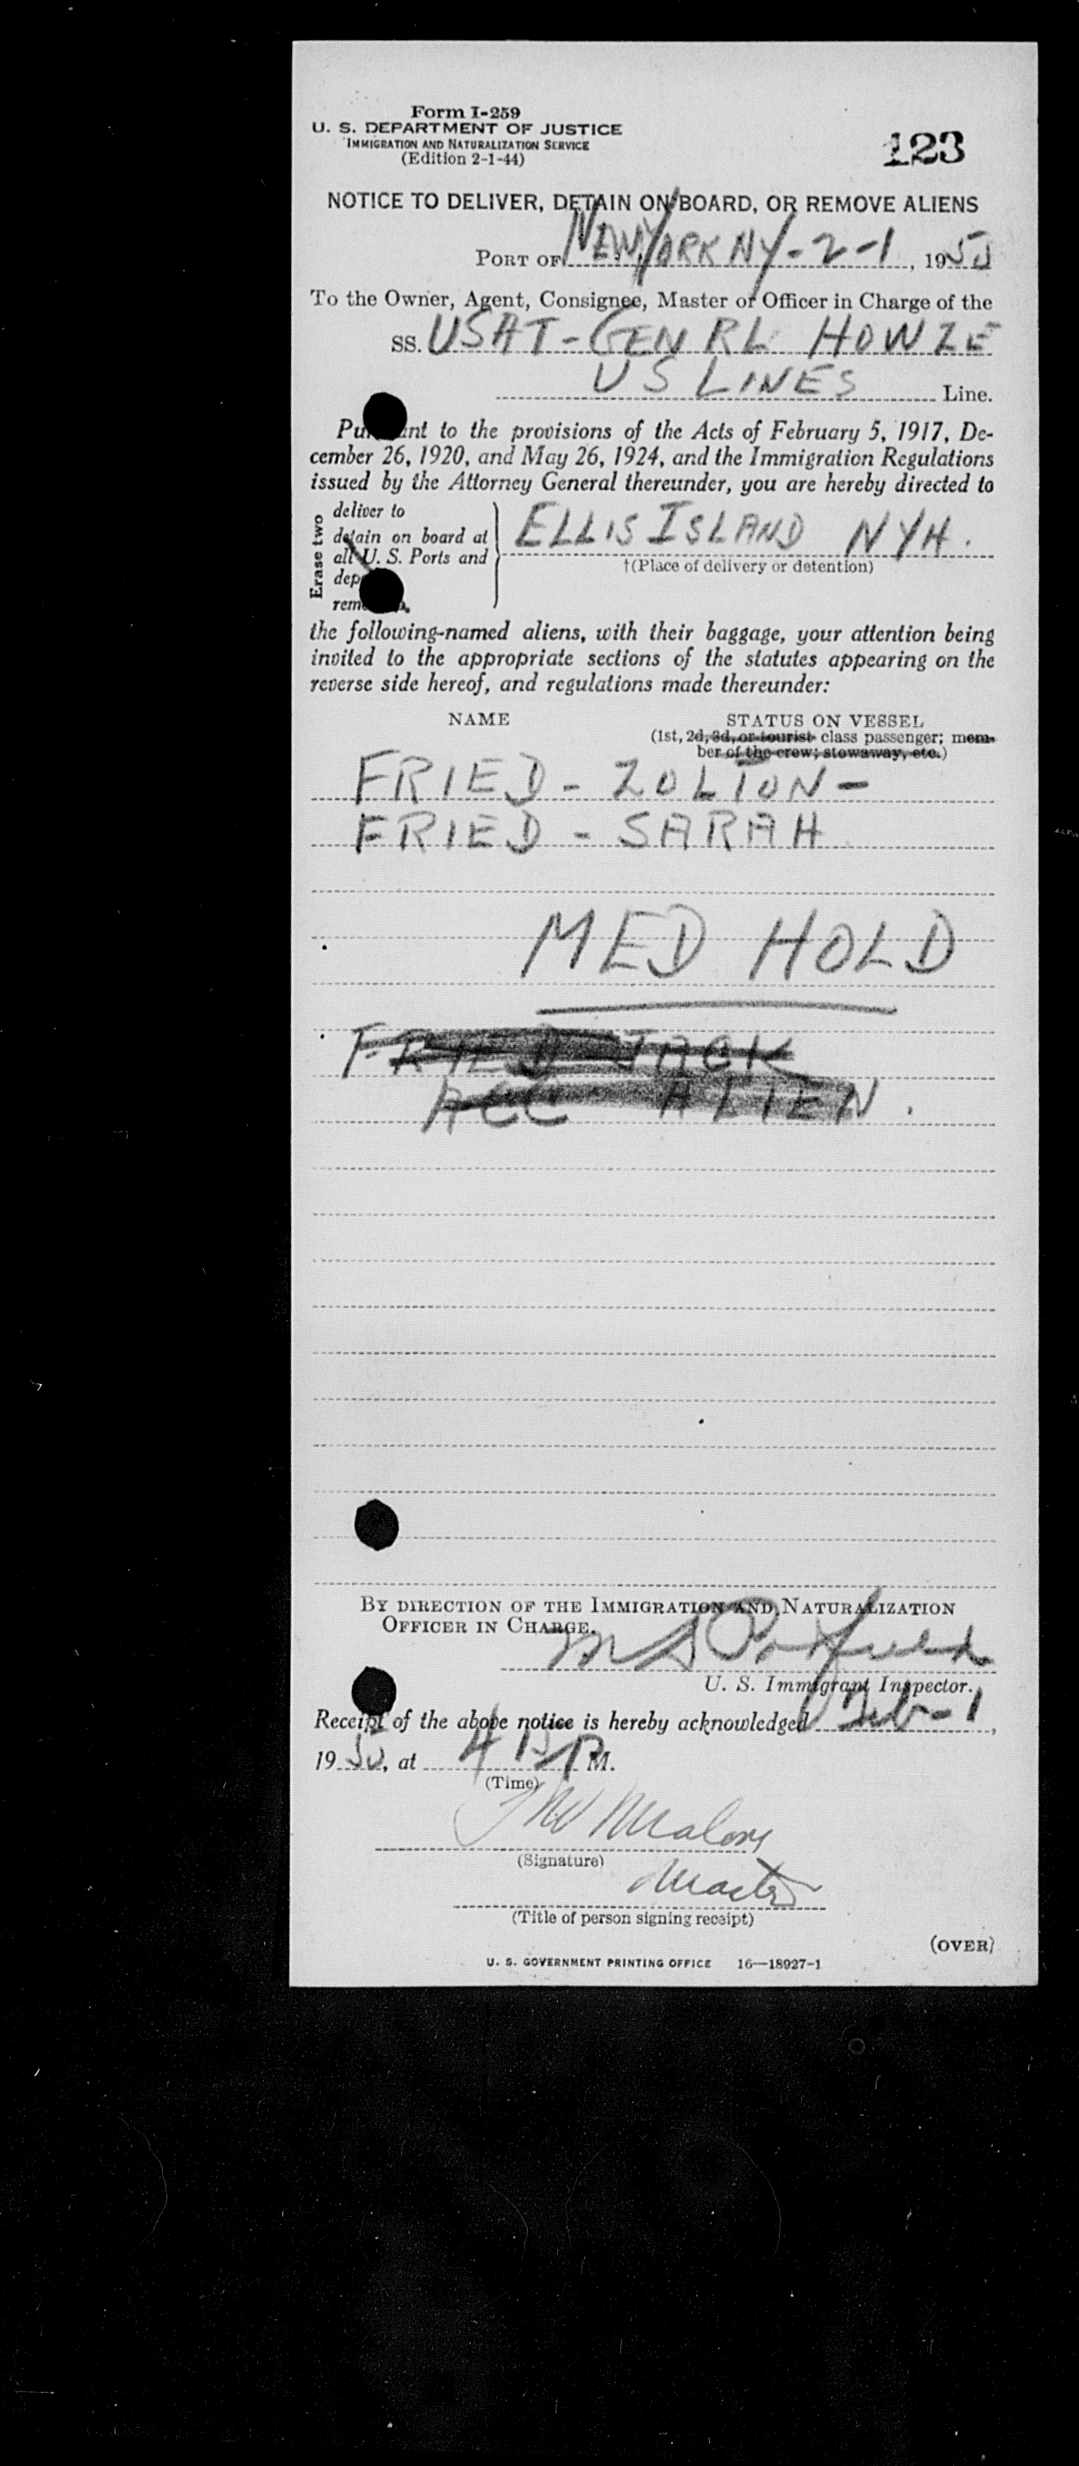 Form I-259
U. S. DEPARTMENT OF JUSTICE
IMMIGRATION AND NATURALIZATION SERVICE
(Edition 2-1-44)
123
NOTICE TO DELIVER, DETAIN ON BOARD, OR REMOVE ALIENS
PORT OF NEW YORK NY - 2-1, 1950
To the Owner, Agent, Consignee, Master or Officer in Charge of the
SS. USAT - GENRL HOWZE
US LINES Line.
Pu nt to the provisions of the Acts of February 5, 1917, De-
cember 26, 1920, and May 26, 1924, and the Immigration Regulations
issued by the Attorney General thereunder, you are hereby directed to
Erase two
deliver to
detain on board at
all U. S. Ports and
dep
rem
ELLIS ISLAND NYH.
†(Place of delivery or detention)
the following-named aliens, with their baggage, your attention being
invited to the appropriate sections of the statutes appearing on the
reverse side hereof, and regulations made thereunder:
NAME STATUS ON VESSEL
(1st, 2d, 3d, or tourist class passenger; mem-
ber of the crew; stowaway, etc.)
FRIED - ZOLTON -
FRIED - SARAH
MED HOLD
FRIED JACK
ACC ALIEN.
BY DIRECTION OF THE IMMIGRATION AND NATURALIZATION
OFFICER IN CHARGE.
U. S. Immigrant Inspector.
Receipt of the above notice is hereby acknowledged Feb-1,
1950, at 4 15 P M.
(Time)
Malony
(Signature)
Master
(Title of person signing receipt)
(OVER)
U. S. GOVERNMENT PRINTING OFFICE 16—18927-1